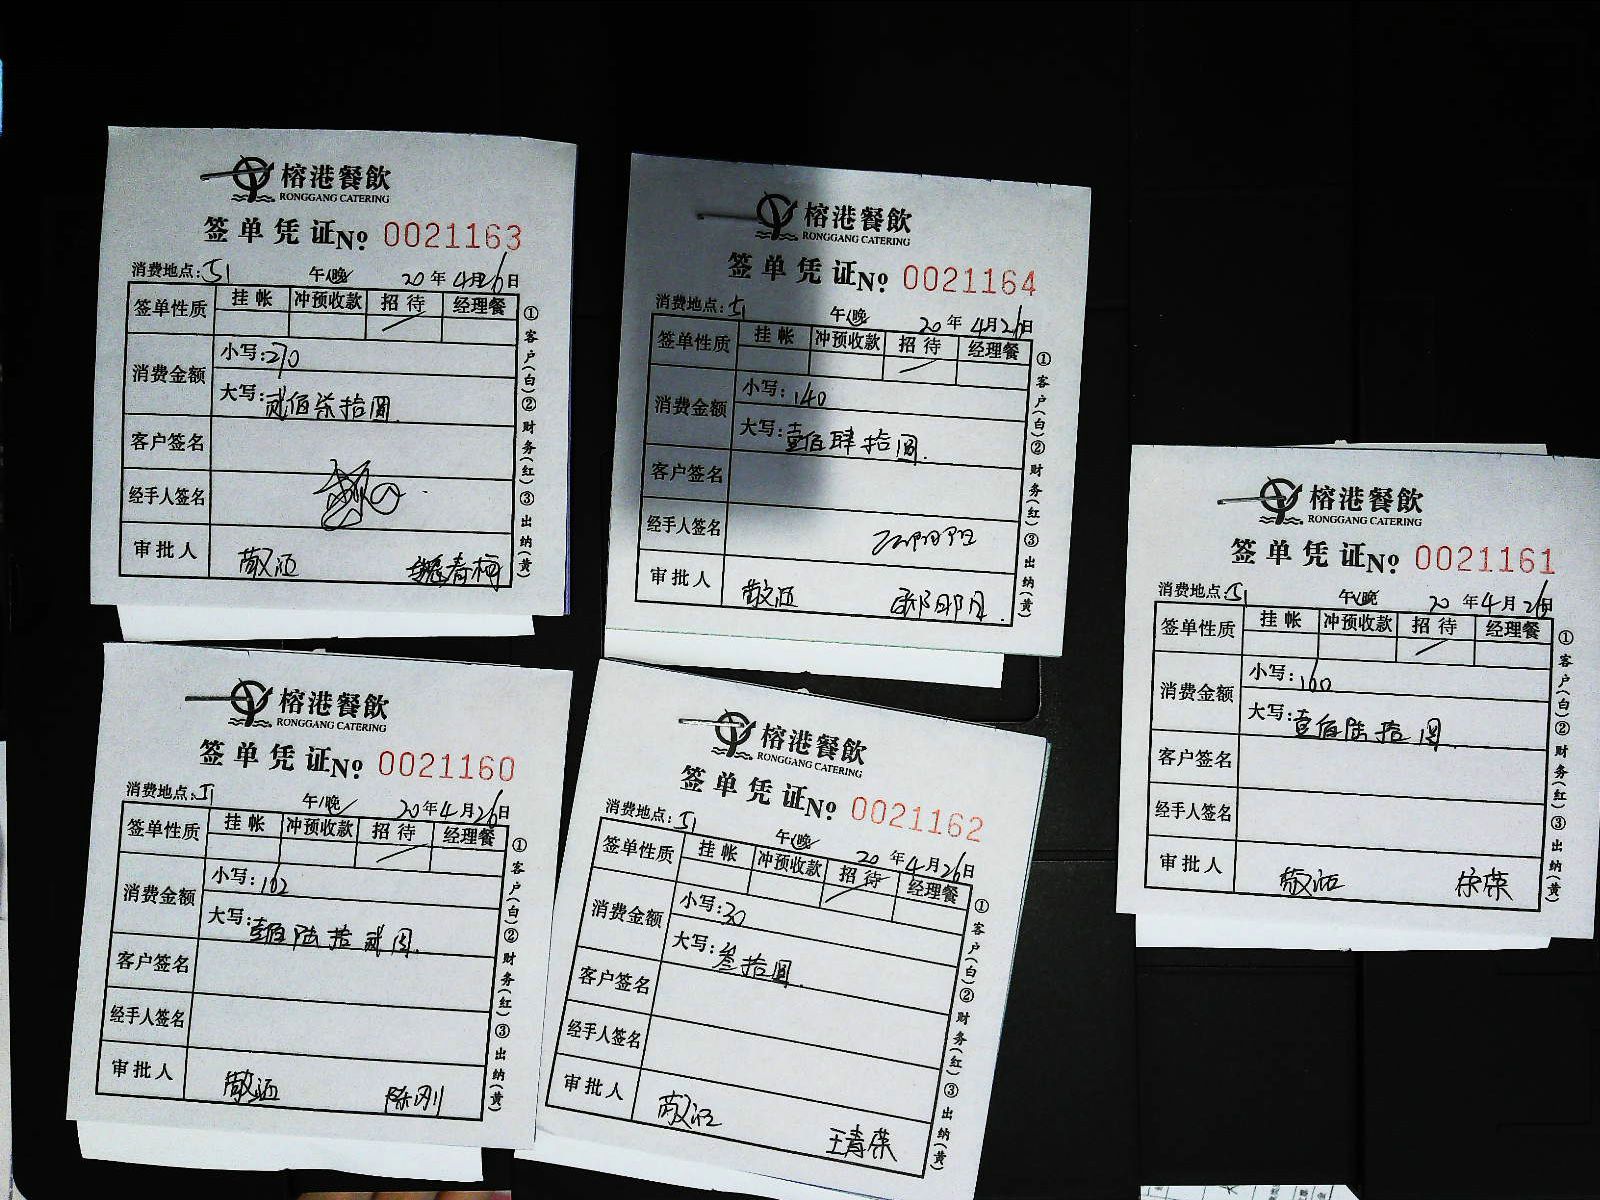 榕港餐飲
RONGGANG CATERING
签单凭证№ 0021163
消费地点: 午/晚 20年4月26日
签单性质 挂帐 冲预收款 招待 经理餐
消费金额 小写:270
大写:贰佰柒拾圆
客户签名
经手人签名
审批人
①客户(白)②财务(红)③出纳(黄)
榕港餐飲
RONGGANG CATERING
签单凭证№ 0021164
消费地点: 午/晚 20年4月26日
签单性质 挂帐 冲预收款 招待 经理餐
消费金额 小写:140
大写:壹佰肆拾圆.
客户签名
经手人签名
审批人
①客户(白)②财务(红)③出纳(黄)
榕港餐飲
RONGGANG CATERING
签单凭证№ 0021161
消费地点: 午/晚 20年4月26日
签单性质 挂帐 冲预收款 招待 经理餐
消费金额 小写:160
大写:壹佰陆拾圆.
客户签名
经手人签名
审批人 徐荣
①客户(白)②财务(红)③出纳(黄)
榕港餐飲
RONGGANG CATERING
签单凭证№ 0021160
消费地点: 午/晚 20年4月26日
签单性质 挂帐 冲预收款 招待 经理餐
消费金额 小写:162
大写:壹佰陆拾贰圆.
客户签名
经手人签名
审批人 陈刚
①客户(白)②财务(红)③出纳(黄)
榕港餐飲
RONGGANG CATERING
签单凭证№ 0021162
消费地点: 午/晚 20年4月26日
签单性质 挂帐 冲预收款 招待 经理餐
消费金额 小写:30
大写:叁拾圆.
客户签名
经手人签名
审批人 王青荣
①客户(白)②财务(红)③出纳(黄)